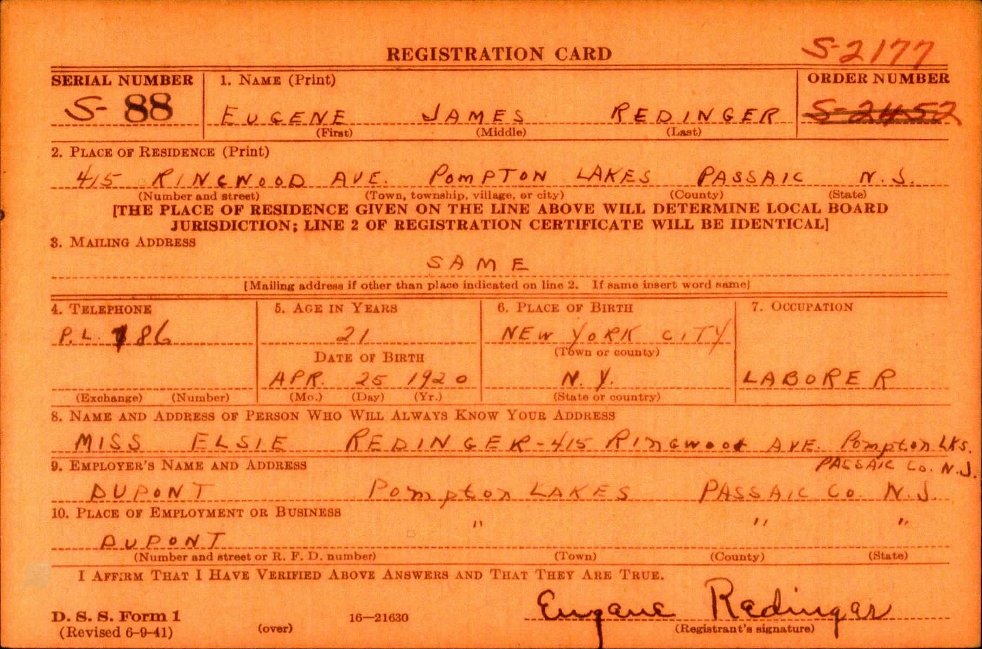 REGISTRATION CARD S-2177
SERIAL NUMBER 1. NAME (Print) ORDER NUMBER
S- 88 EUGENE JAMES REDINGER S-2452
(First) (Middle) (Last)
2. PLACE OF RESIDENCE (Print)
415 RINGWOOD AVE. POMPTON LAKES PASSAIC N.J.
(Number and street) (Town, township, village, or city) (County) (State)
[THE PLACE OF RESIDENCE GIVEN ON THE LINE ABOVE WILL DETERMINE LOCAL BOARD
JURISDICTION; LINE 2 OF REGISTRATION CERTIFICATE WILL BE IDENTICAL]
3. MAILING ADDRESS
SAME
[Mailing address if other than place indicated on line 2. If same insert word same]
4. TELEPHONE 5. AGE IN YEARS 6. PLACE OF BIRTH 7. OCCUPATION
P.L. 786 21 NEW YORK CITY
(Town or county)
DATE OF BIRTH
APR. 25 1920 N.Y. LABORER
(Exchange) (Number) (Mo.) (Day) (Yr.) (State or country)
8. NAME AND ADDRESS OF PERSON WHO WILL ALWAYS KNOW YOUR ADDRESS
MISS ELSIE REDINGER-415 RINGWOOD AVE. POMPTON LKS.
PASSAIC CO. N.J.
9. EMPLOYER'S NAME AND ADDRESS
DUPONT POMPTON LAKES PASSAIC CO. N.J.
10. PLACE OF EMPLOYMENT OR BUSINESS
DUPONT " " "
(Number and street or R. F. D. number) (Town) (County) (State)
I AFFIRM THAT I HAVE VERIFIED ABOVE ANSWERS AND THAT THEY ARE TRUE.
D. S. S. Form 1 Eugene Redinger
(Revised 6-9-41) (over) 16—21630 (Registrant's signature)